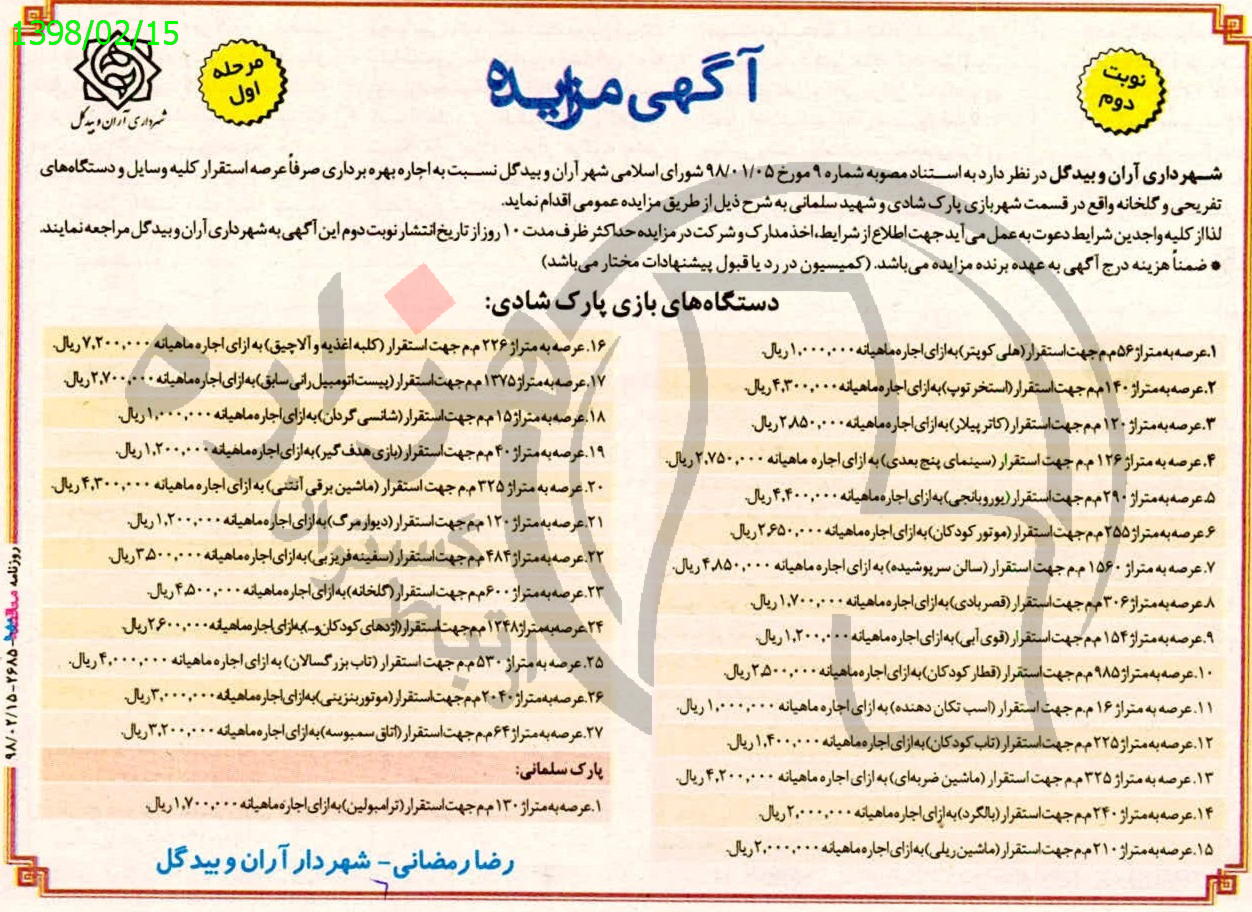 1398/02/15
شهرداری آران و بیدگل
مرحله
اول
آگهی مزایده
نوبت
دوم
شهرداری آران و بیدگل در نظر دارد به استناد مصوبه شماره ۹ مورخ ۹۸/۰۱/۰۵ شورای اسلامی شهر آران و بیدگل نسبت به اجاره بهره برداری صرفاً عرصه استقرار کلیه وسایل و دستگاه‌های
تفریحی و گلخانه واقع در قسمت شهربازی پارک شادی و شهید سلمانی به شرح ذیل از طریق مزایده عمومی اقدام نماید.
لذا از کلیه واجدین شرایط دعوت به عمل می‌آید جهت اطلاع از شرایط، اخذ مدارک و شرکت در مزایده حداکثر ظرف مدت ۱۰ روز از تاریخ انتشار نوبت دوم این آگهی به شهرداری آران و بیدگل مراجعه نمایند.
* ضمناً هزینه درج آگهی به عهده برنده مزایده می‌باشد. (کمیسیون در رد یا قبول پیشنهادات مختار می‌باشد)
دستگاه‌های بازی پارک شادی:
۱.عرصه به متراژ ۵۶ م.م جهت استقرار (هلی کوپتر) به ازای اجاره ماهیانه ۱,۰۰۰,۰۰۰ ریال.
۲.عرصه به متراژ ۱۴۰ م.م جهت استقرار (استخر توپ) به ازای اجاره ماهیانه ۴,۳۰۰,۰۰۰ ریال.
۳.عرصه به متراژ ۱۲۰ م.م جهت استقرار (کاترپیلار) به ازای اجاره ماهیانه ۲,۸۵۰,۰۰۰ ریال.
۴.عرصه به متراژ ۱۲۶ م.م جهت استقرار (سینمای پنج بعدی) به ازای اجاره ماهیانه ۲,۷۵۰,۰۰۰ ریال.
۵.عرصه به متراژ ۲۹۰ م.م جهت استقرار (یوروبانجی) به ازای اجاره ماهیانه ۴,۴۰۰,۰۰۰ ریال.
۶.عرصه به متراژ ۲۵۵ م.م جهت استقرار (موتور کودکان) به ازای اجاره ماهیانه ۲,۶۵۰,۰۰۰ ریال.
۷.عرصه به متراژ ۱۵۶۰ م.م جهت استقرار (سالن سرپوشیده) به ازای اجاره ماهیانه ۴,۸۵۰,۰۰۰ ریال.
۸.عرصه به متراژ ۳۰۶ م.م جهت استقرار (قصر بادی) به ازای اجاره ماهیانه ۱,۷۰۰,۰۰۰ ریال.
۹.عرصه به متراژ ۱۵۴ م.م جهت استقرار (قوی آبی) به ازای اجاره ماهیانه ۱,۲۰۰,۰۰۰ ریال.
۱۰.عرصه به متراژ ۹۸۵ م.م جهت استقرار (قطار کودکان) به ازای اجاره ماهیانه ۲,۵۰۰,۰۰۰ ریال.
۱۱.عرصه به متراژ ۱۶ م.م جهت استقرار (اسب تکان دهنده) به ازای اجاره ماهیانه ۱,۰۰۰,۰۰۰ ریال.
۱۲.عرصه به متراژ ۲۲۵ م.م جهت استقرار (تاب کودکان) به ازای اجاره ماهیانه ۱,۴۰۰,۰۰۰ ریال.
۱۳.عرصه به متراژ ۳۲۵ م.م جهت استقرار (ماشین ضربه‌ای) به ازای اجاره ماهیانه ۴,۲۰۰,۰۰۰ ریال.
۱۴.عرصه به متراژ ۲۴۰ م.م جهت استقرار (بالگرد) به ازای اجاره ماهیانه ۲,۰۰۰,۰۰۰ ریال.
۱۵.عرصه به متراژ ۲۱۰ م.م جهت استقرار (ماشین ریلی) به ازای اجاره ماهیانه ۲,۰۰۰,۰۰۰ ریال.
۱۶.عرصه به متراژ ۲۲۶ م.م جهت استقرار (کلبه اغذیه و آلاچیق) به ازای اجاره ماهیانه ۷,۲۰۰,۰۰۰ ریال.
۱۷.عرصه به متراژ ۱۳۷۵ م.م جهت استقرار (پیست اتومبیل رانی سابق) به ازای اجاره ماهیانه ۲,۷۰۰,۰۰۰ ریال.
۱۸.عرصه به متراژ ۱۵ م.م جهت استقرار (شانسی گردان) به ازای اجاره ماهیانه ۱,۰۰۰,۰۰۰ ریال.
۱۹.عرصه به متراژ ۴۰ م.م جهت استقرار (بازی هدف گیر) به ازای اجاره ماهیانه ۱,۲۰۰,۰۰۰ ریال.
۲۰.عرصه به متراژ ۳۲۵ م.م جهت استقرار (ماشین برقی آنتنی) به ازای اجاره ماهیانه ۴,۳۰۰,۰۰۰ ریال.
۲۱.عرصه به متراژ ۱۲۰ م.م جهت استقرار (دیوار مرگ) به ازای اجاره ماهیانه ۱,۲۰۰,۰۰۰ ریال.
۲۲.عرصه به متراژ ۴۸۴ م.م جهت استقرار (سفینه فریزبی) به ازای اجاره ماهیانه ۳,۵۰۰,۰۰۰ ریال.
۲۳.عرصه به متراژ ۶۰۰ م.م جهت استقرار (گلخانه) به ازای اجاره ماهیانه ۴,۵۰۰,۰۰۰ ریال.
۲۴.عرصه به متراژ ۱۳۴۸ م.م جهت استقرار (اژدهای کودکان و...) به ازای اجاره ماهیانه ۲,۶۰۰,۰۰۰ ریال.
۲۵.عرصه به متراژ ۵۳۰ م.م جهت استقرار (تاب بزرگسالان) به ازای اجاره ماهیانه ۴,۰۰۰,۰۰۰ ریال.
۲۶.عرصه به متراژ ۲۰۴۰ م.م جهت استقرار (موتور بنزینی) به ازای اجاره ماهیانه ۳,۰۰۰,۰۰۰ ریال.
۲۷.عرصه به متراژ ۶۴ م.م جهت استقرار (اتاق سمبوسه) به ازای اجاره ماهیانه ۳,۲۰۰,۰۰۰ ریال.
پارک سلمانی:
۱.عرصه به متراژ ۱۳۰ م.م جهت استقرار (ترامبولین) به ازای اجاره ماهیانه ۱,۷۰۰,۰۰۰ ریال.
رضا رمضانی - شهردار آران و بیدگل
روزنامه
۹۸/۰۲/۱۵-۲۶۸۵